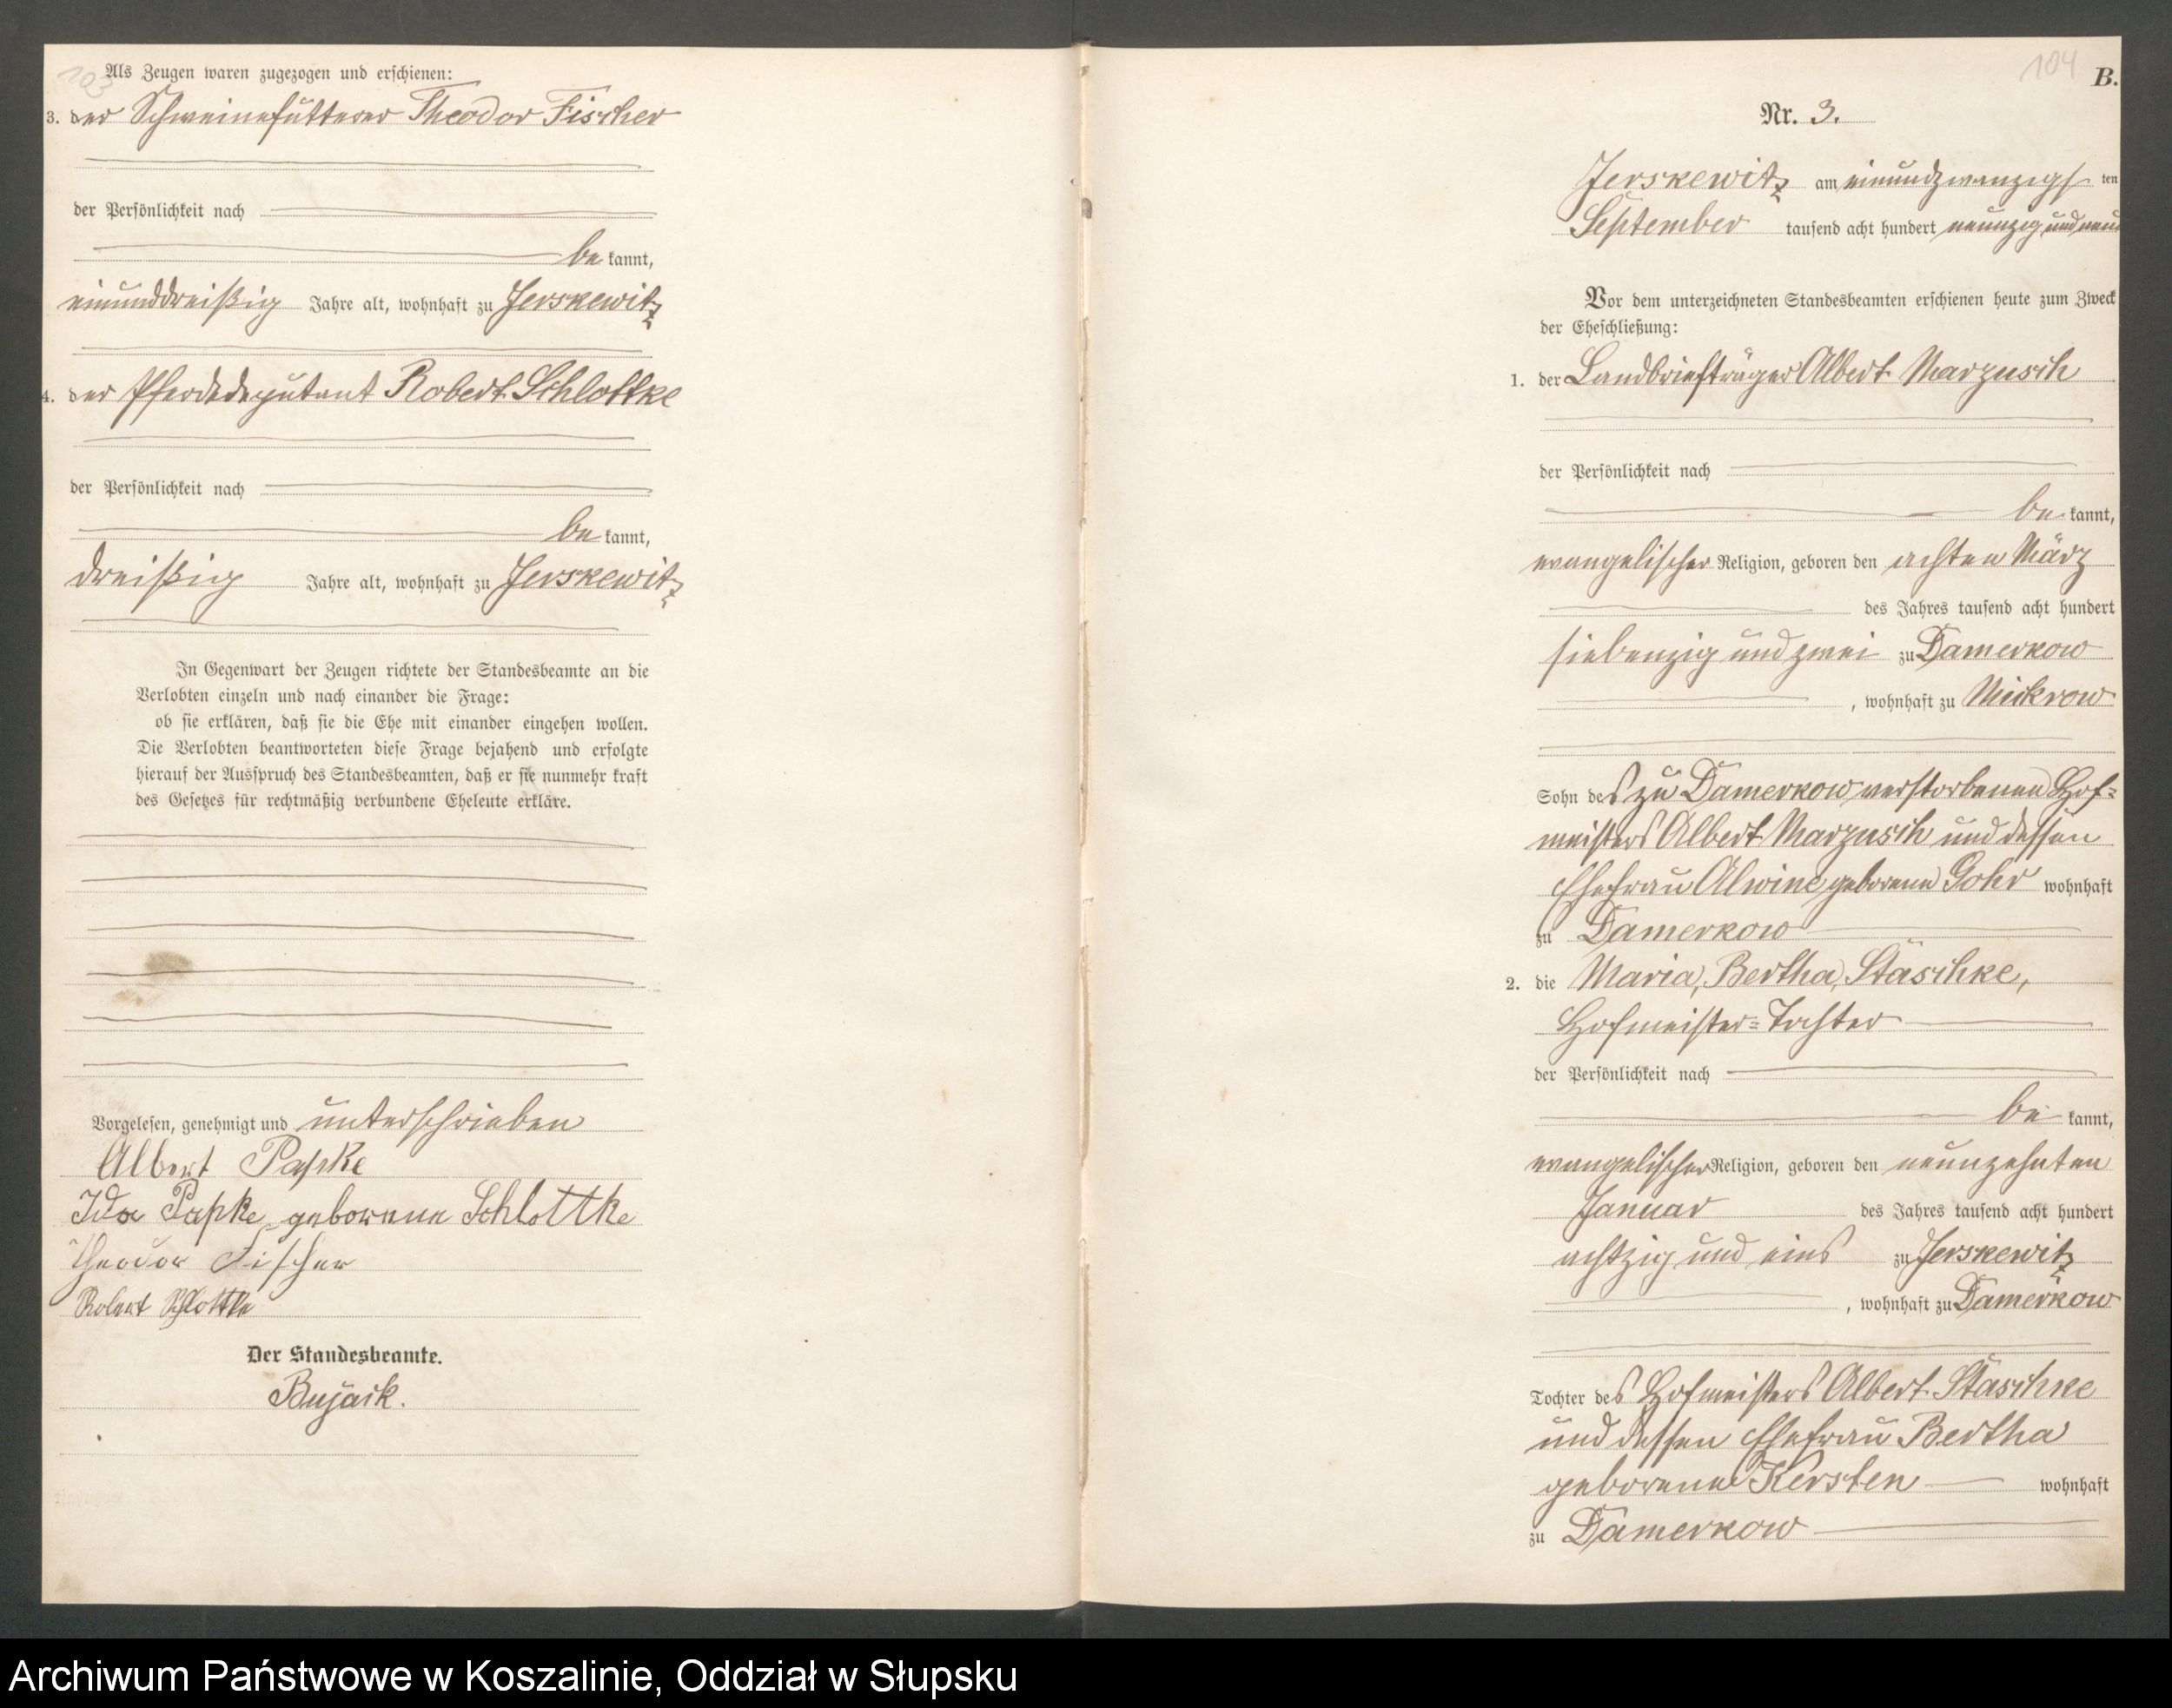 103
Als Zeugen waren zugezogen und erschienen:
3. der Schweinefütterer Theodor Fischer
der Persönlichkeit nach
be kannt,
einunddreißig Jahre alt, wohnhaft zu Jerskewitz
4. der Pferdedeputant Robert Schlottke
der Persönlichkeit nach
be kannt,
dreißig Jahre alt, wohnhaft zu Jerskewitz
In Gegenwart der Zeugen richtete der Standesbeamte an die
Verlobten einzeln und nach einander die Frage:
ob sie erklären, daß sie die Ehe mit einander eingehen wollen.
Die Verlobten beantworteten diese Frage bejahend und erfolgte
hierauf der Ausspruch des Standesbeamten, daß er sie nunmehr kraft
des Gesetzes für rechtmäßig verbundene Eheleute erkläre.
Vorgelesen, genehmigt und unterschrieben
Albert Papke
Ida Papke geborene Schlottke
Theodor Fischer
Robert Schlottke
Der Standesbeamte.
Bujack.
104
B.
Nr. 3.
Jerskewitz am einundzwanzigsten
September tausend acht hundert neunzig und neun
Vor dem unterzeichneten Standesbeamten erschienen heute zum Zweck
der Eheschließung:
1. der Landbriefträger Albert Marzusch
der Persönlichkeit nach
be kannt,
evangelischer Religion, geboren den achten März
des Jahres tausend acht hundert
siebenzig und zwei zu Damerkow
, wohnhaft zu Mickrow
Sohn des zu Damerkow verstorbenen Hof=
meisters Albert Marzusch und dessen
Ehefrau Alwine geborene Gohr wohnhaft
zu Damerkow
2. die Maria, Bertha, Stäschke,
Hofmeister=Tochter
der Persönlichkeit nach
be kannt,
evangelischer Religion, geboren den neunzehnten
Januar des Jahres tausend acht hundert
achtzig und eins zu Jerskewitz
, wohnhaft zu Damerkow
Tochter des Hofmeisters Albert Stäschke
und dessen Ehefrau Bertha
geborene Kersten wohnhaft
zu Damerkow
Archiwum Państwowe w Koszalinie, Oddział w Słupsku